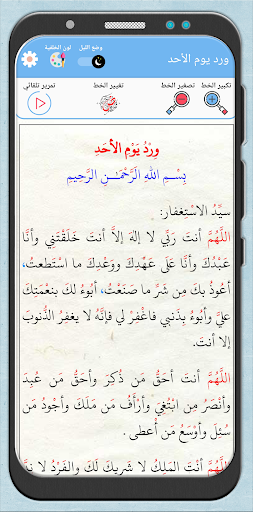 ورد يوم الأحد
وضع الليل
لون الخلفية
تكبير الخط
تصغير الخط
تغيير الخط
تمرير تلقائي
وِرْدُ يَوْمِ الأَحَدِ
بِسْمِ اللهِ الرَّحْمَنِ الرَّحِيمِ
سيِّدُ الاستِغفارِ:
اللَّهُمَّ أنتَ رَبِّي لا إلهَ إلاَّ أنتَ خَلَقْتَنِي وأنَّا
عَبْدُكَ وأنَّا عَلَى عَهْدِكَ ووَعْدِكَ ما استَطعتُ،
أعُوذُ بكَ مِن شَرِّ ما صَنَعْتُ، أبُوءُ لكَ بنِعْمَتِكَ
عليَّ وأبُوءُ بذَنبي فاغْفِرْ لي فإنَّهُ لا يغفِرُ الذُّنوبَ
إلا أنتَ.
اللَّهُمَّ أنتَ أحَقُّ مَن ذُكِرَ وأحَقُّ مَن عُبِدَ
وأنْصَرُ مِن ابتُغِيَ وأرْأَفُ مَن مَلَكَ وأجْوَدُ مَن
سُئِلَ وأوْسَعُ مَن أعطى .
اللَّهُمَّ أنتَ المَلِكُ لا شريكَ لكَ والفَرْدُ لا